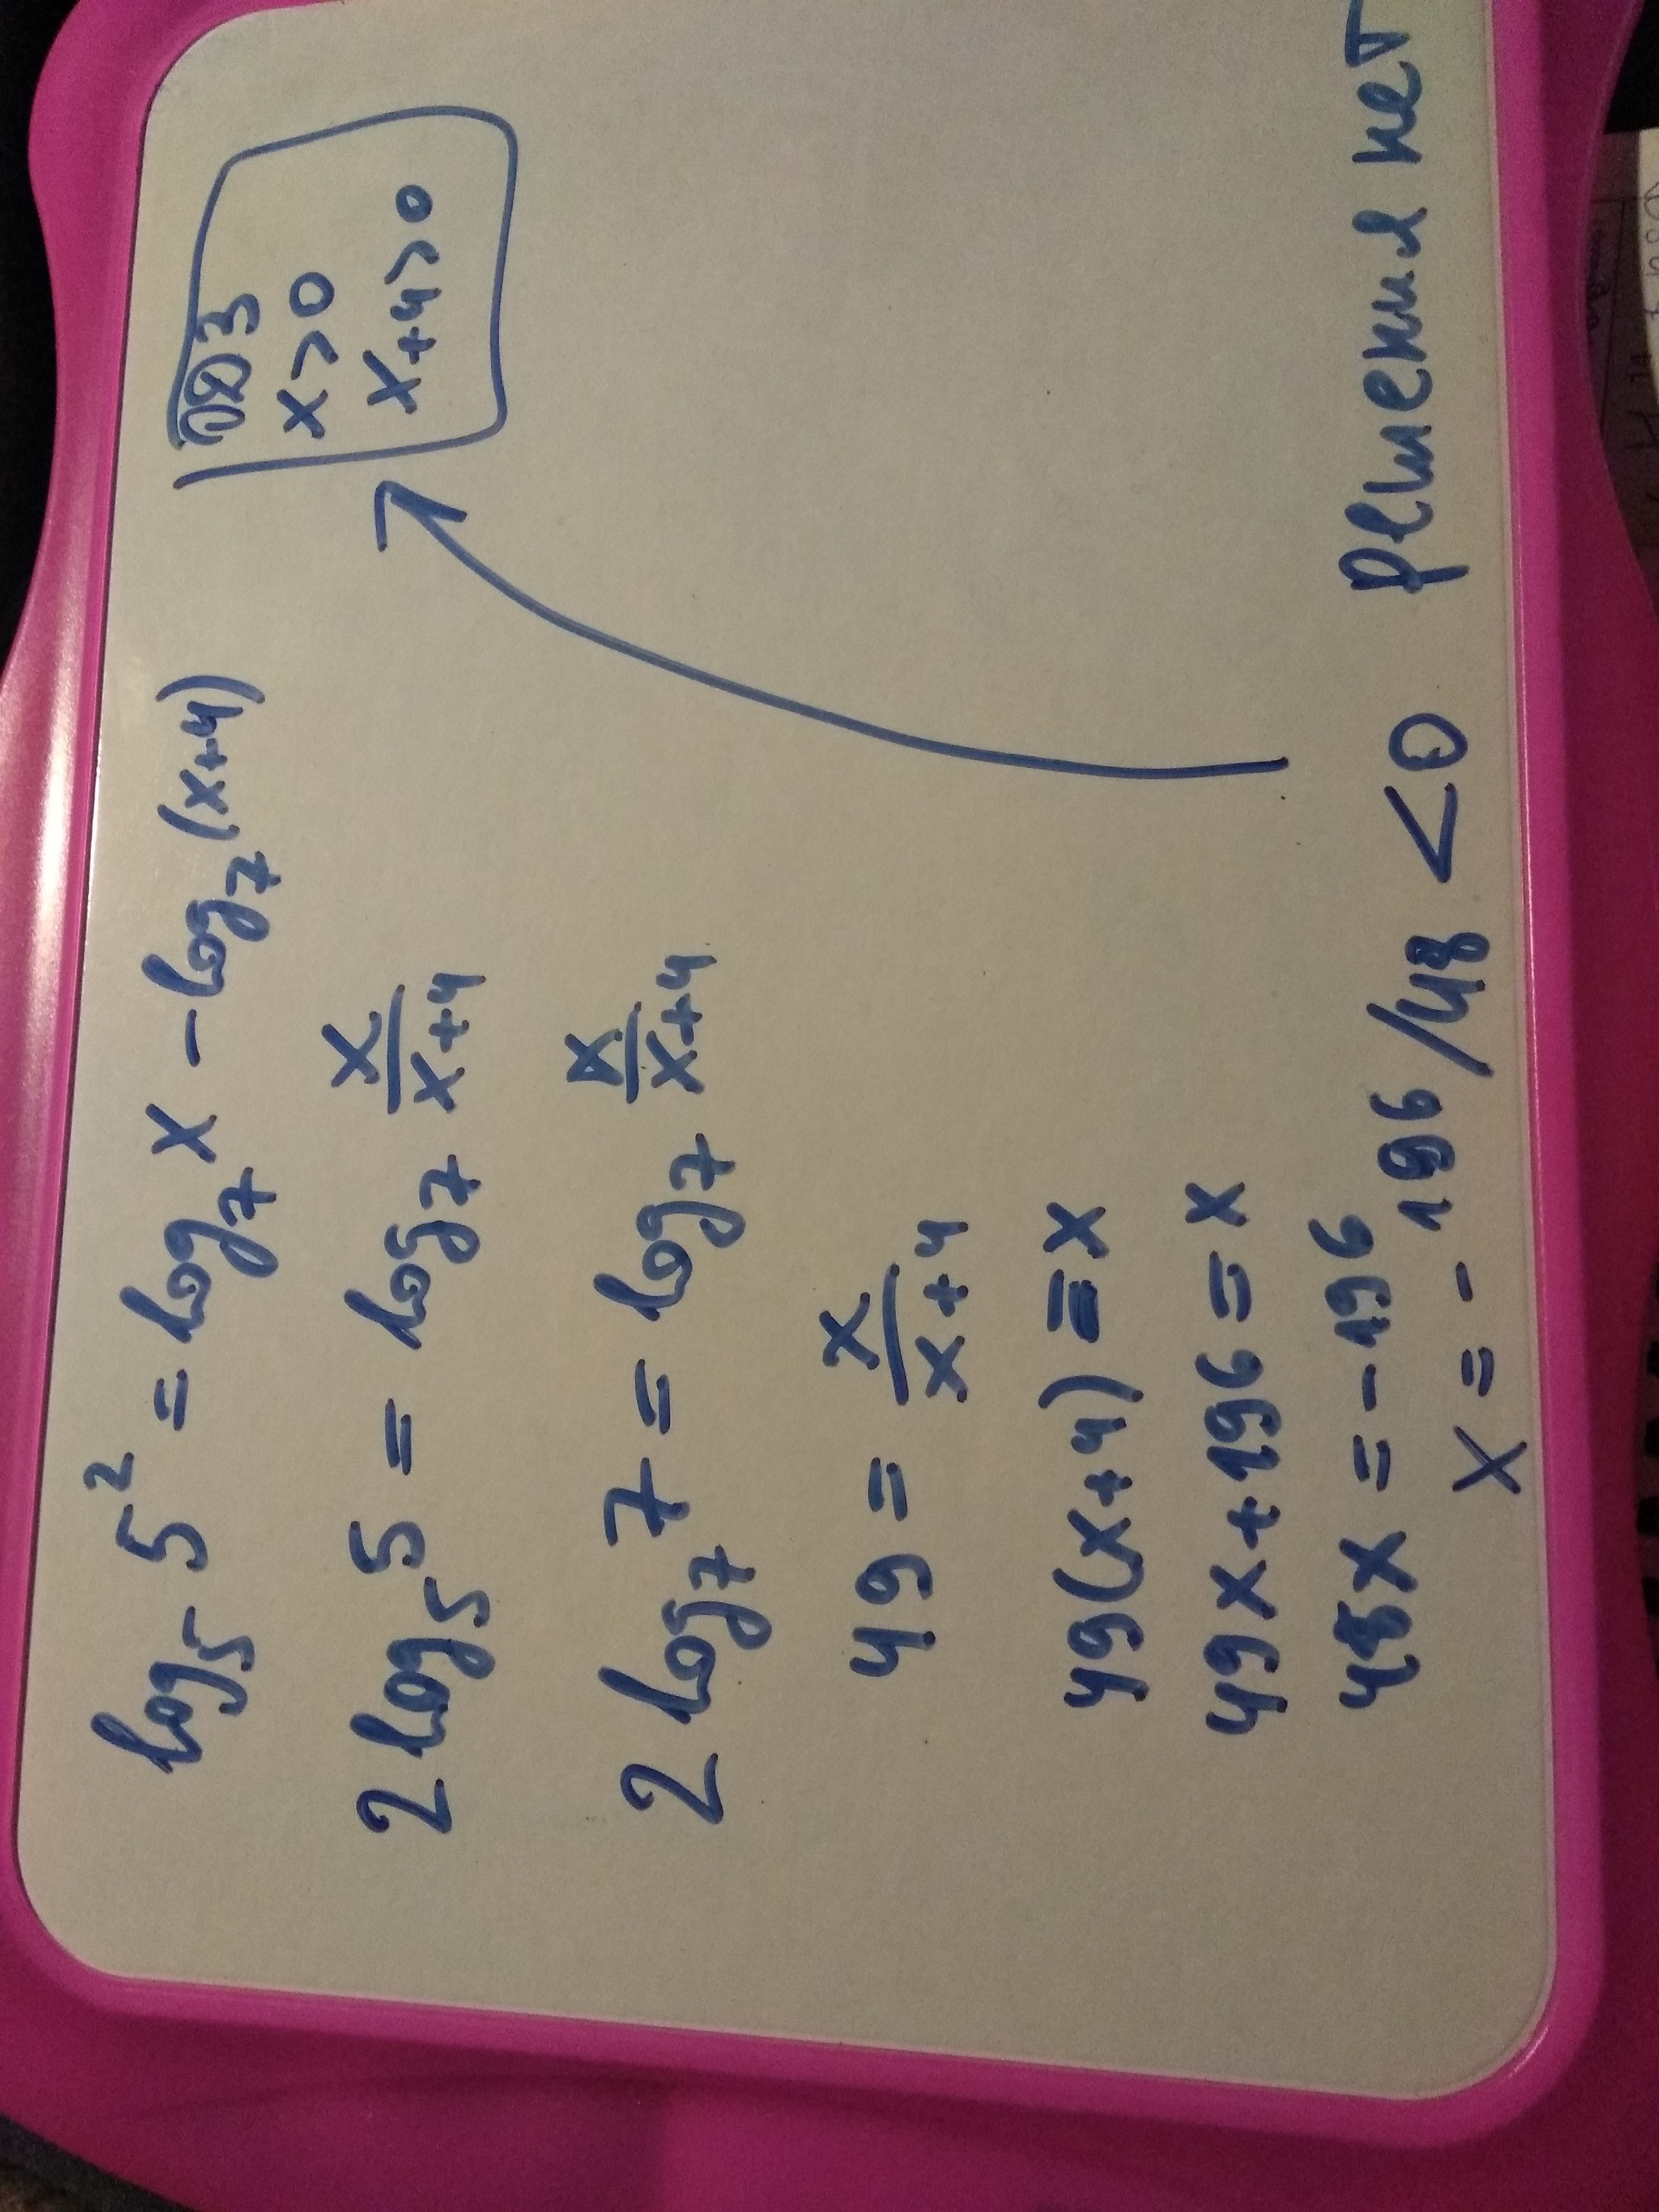 log₅ 5² = log₇ x - log₇ (x+4)
ОДЗ
x>0
x+4>0
2 log₅ 5 = log₇ x/(x+4)
2 log₇ 7 = log₇ x/(x+4)
49 = x/(x+4)
49(x+4) = x
49x+196 = x
48x = -196
x = - 196/48 <0 решения нет